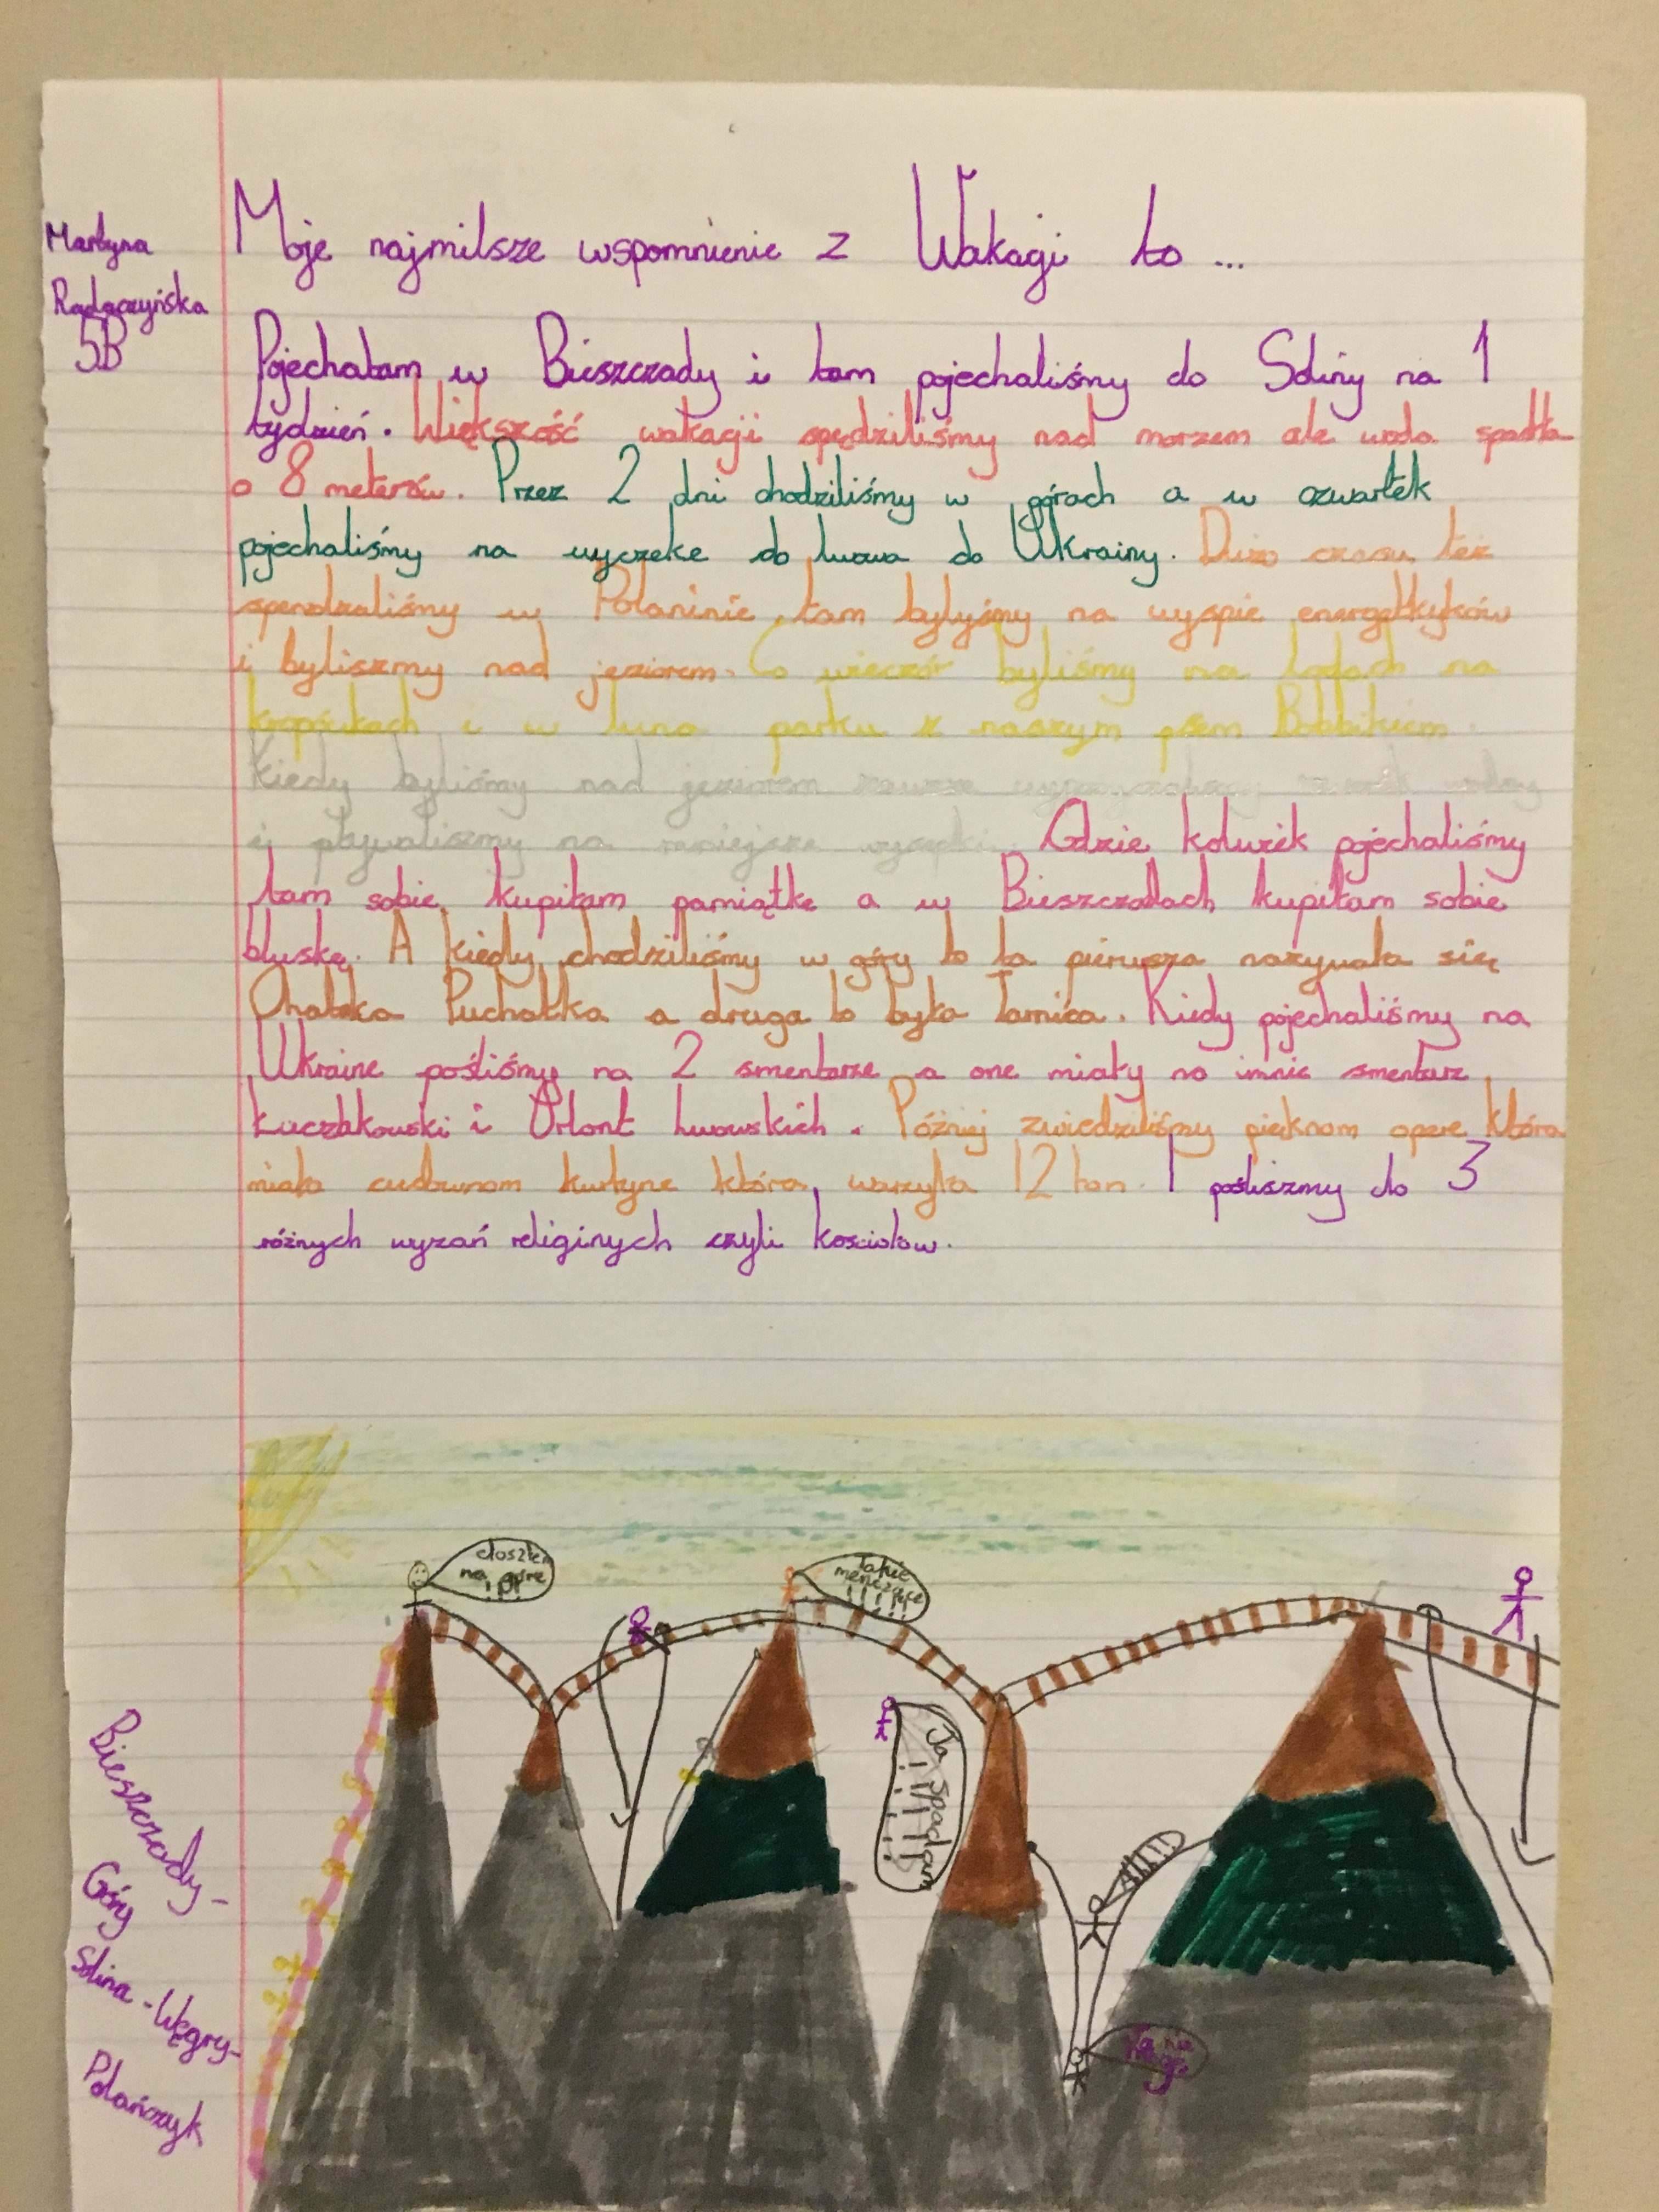 Martyna
Radaczyńska
5B
Moje najmilsze wspomnienie z Wakagi to ...
Pojechałam w Bieszczady i tam pojechaliśmy do Soliny na 1
tydzień. Większość wakagii spędziliśmy nad morzem ale woda spadła
o 8 meterów. Przez 2 dni chodziliśmy w górach a w czwartek
pojechaliśmy na wyczeke do lwowa do Ukrainy. Dużo czasu też
spendzaliśmy w Polaninie, tam byłyśmy na wyspie energetkyków
i byliszmy nad jeziorem. Co wieczór byliśmy na lodach na
kropówkach i w luna parku z naszym psem Bobbikiem.
Kiedy byliśmy nad jeziorem zawsze rowerk wodny
i pływaliszmy na mniejsze wysepki. Gdzie kolwiek pojechaliśmy
tam sobie kupiłam pamiątke a w Bieszczadach kupiłam sobie
bluskę. A kiedy chodziliśmy w góry to ta pierwsza nazywała się
Chatka Puchatka a druga to była Tarnica. Kiedy pojechaliśmy na
Ukraine pośliśmy na 2 smentarze a one miały na imnie smentarz
Łuczakowski i Orlont Lwowskich. Później zwiedziliśmy pieknom opere która
miała cudownom kurtyne która warzyła 12 ton. I pośliszmy do 3
różnych wyzań religinych czyli kosciołow.
doszłem
na góre
takie
menczące
!!!!!
Ja spadłam
Bieszczady-
Góry
Solina-Węgry-
Polańczyk